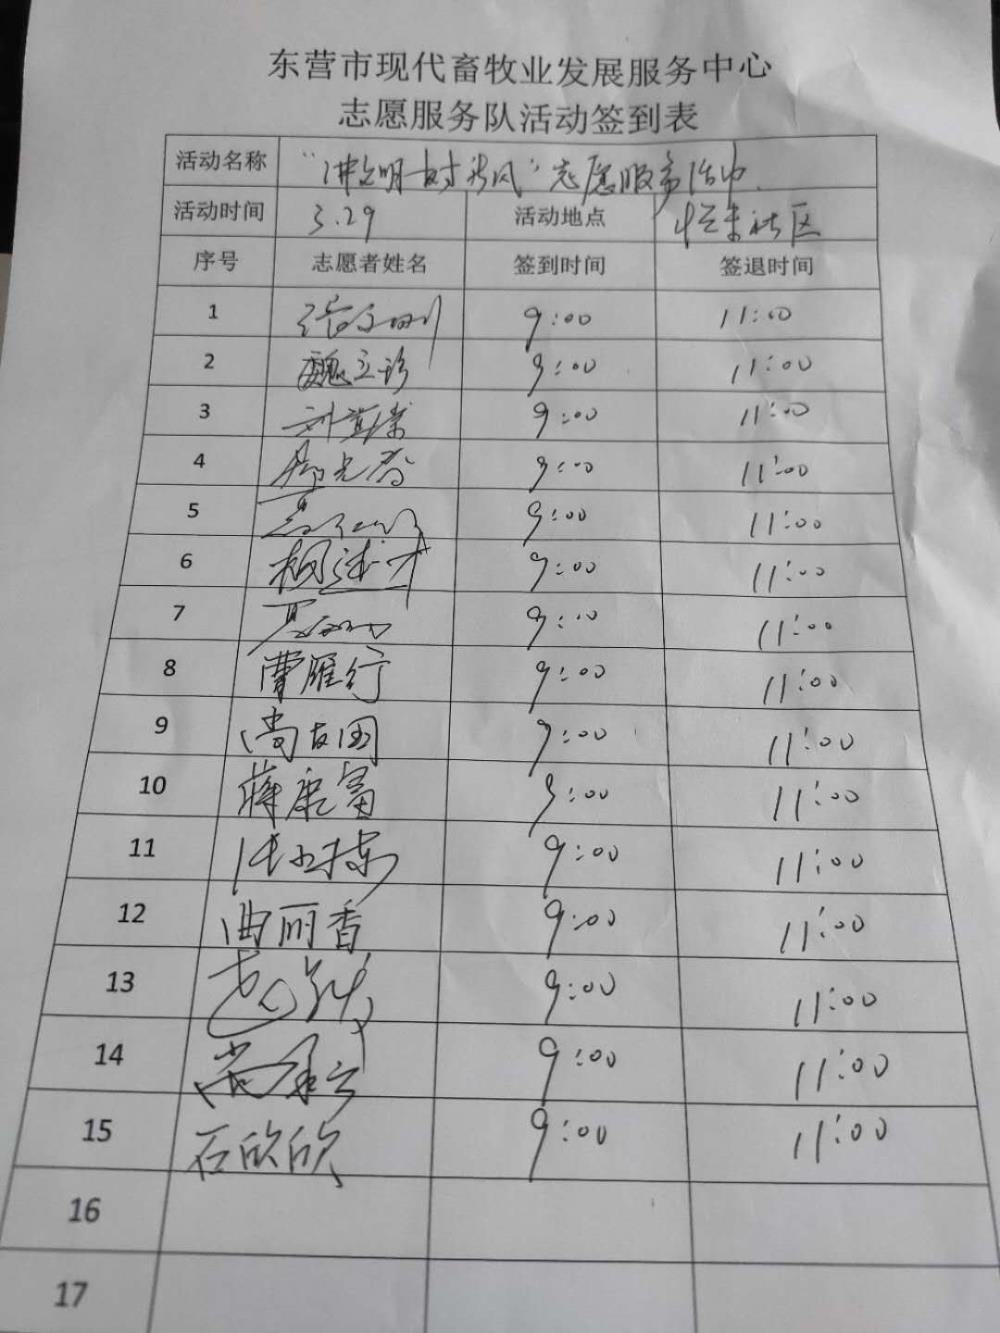 东营市现代畜牧业发展服务中心
志愿服务队活动签到表
活动名称 "讲文明树新风"志愿服务活动
活动时间 3.29 活动地点 社区
序号 志愿者姓名 签到时间 签退时间
1 9:00 11:00
2 魏立珍 9:00 11:00
3 9:00 11:00
4 9:00 11:00
5 9:00 11:00
6 9:00 11:00
7 9:00 11:00
8 曹雁行 9:00 11:00
9 尚友国 9:00 11:00
10 蒋康富 9:00 11:00
11 9:00 11:00
12 曲丽香 9:00 11:00
13 9:00 11:00
14 9:00 11:00
15 石欣欣 9:00 11:00
16
17